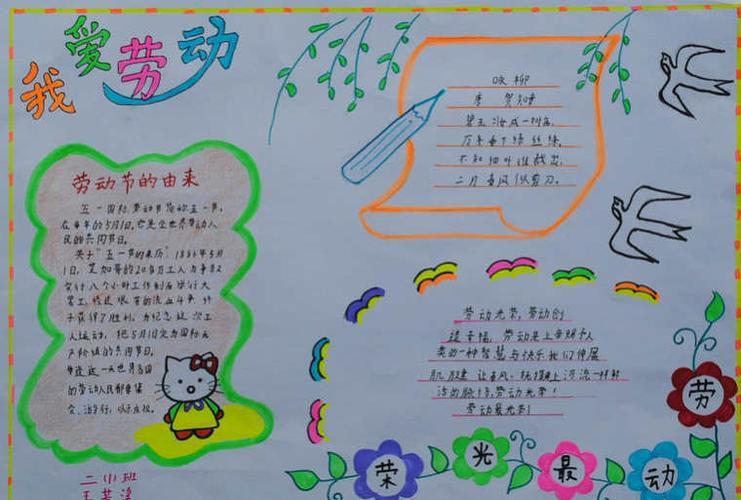 我爱劳动
劳动节的由来
五一国际劳动节简称五一节,
在每年的5月1日。它是全世界劳动人
民的共同节日。
关于"五一节的来历":1886年5月
1日,芝加哥的20多万工人为争取
实行八个小时工作制而举行大
罢工,经过艰苦的流血斗争,终
于获得了胜利。为纪念这次工
人运动,把5月1日定为国际无
产阶级的共同节日。
每逢这一天世界各国
的劳动人民都要集
会、游行,以示庆祝。
二(1)班
咏柳
唐 贺知章
碧玉妆成一树高,
万条垂下绿丝绦。
不知细叶谁裁出,
二月春风似剪刀。
劳动光荣,劳动创
造幸福,劳动是上帝赐予人
类的一种智慧与快乐让们伸展
肌腱 让春风、抚摸 上河流一样鲜
活的脉 劳动光荣!
劳动最光荣!
劳动最光荣